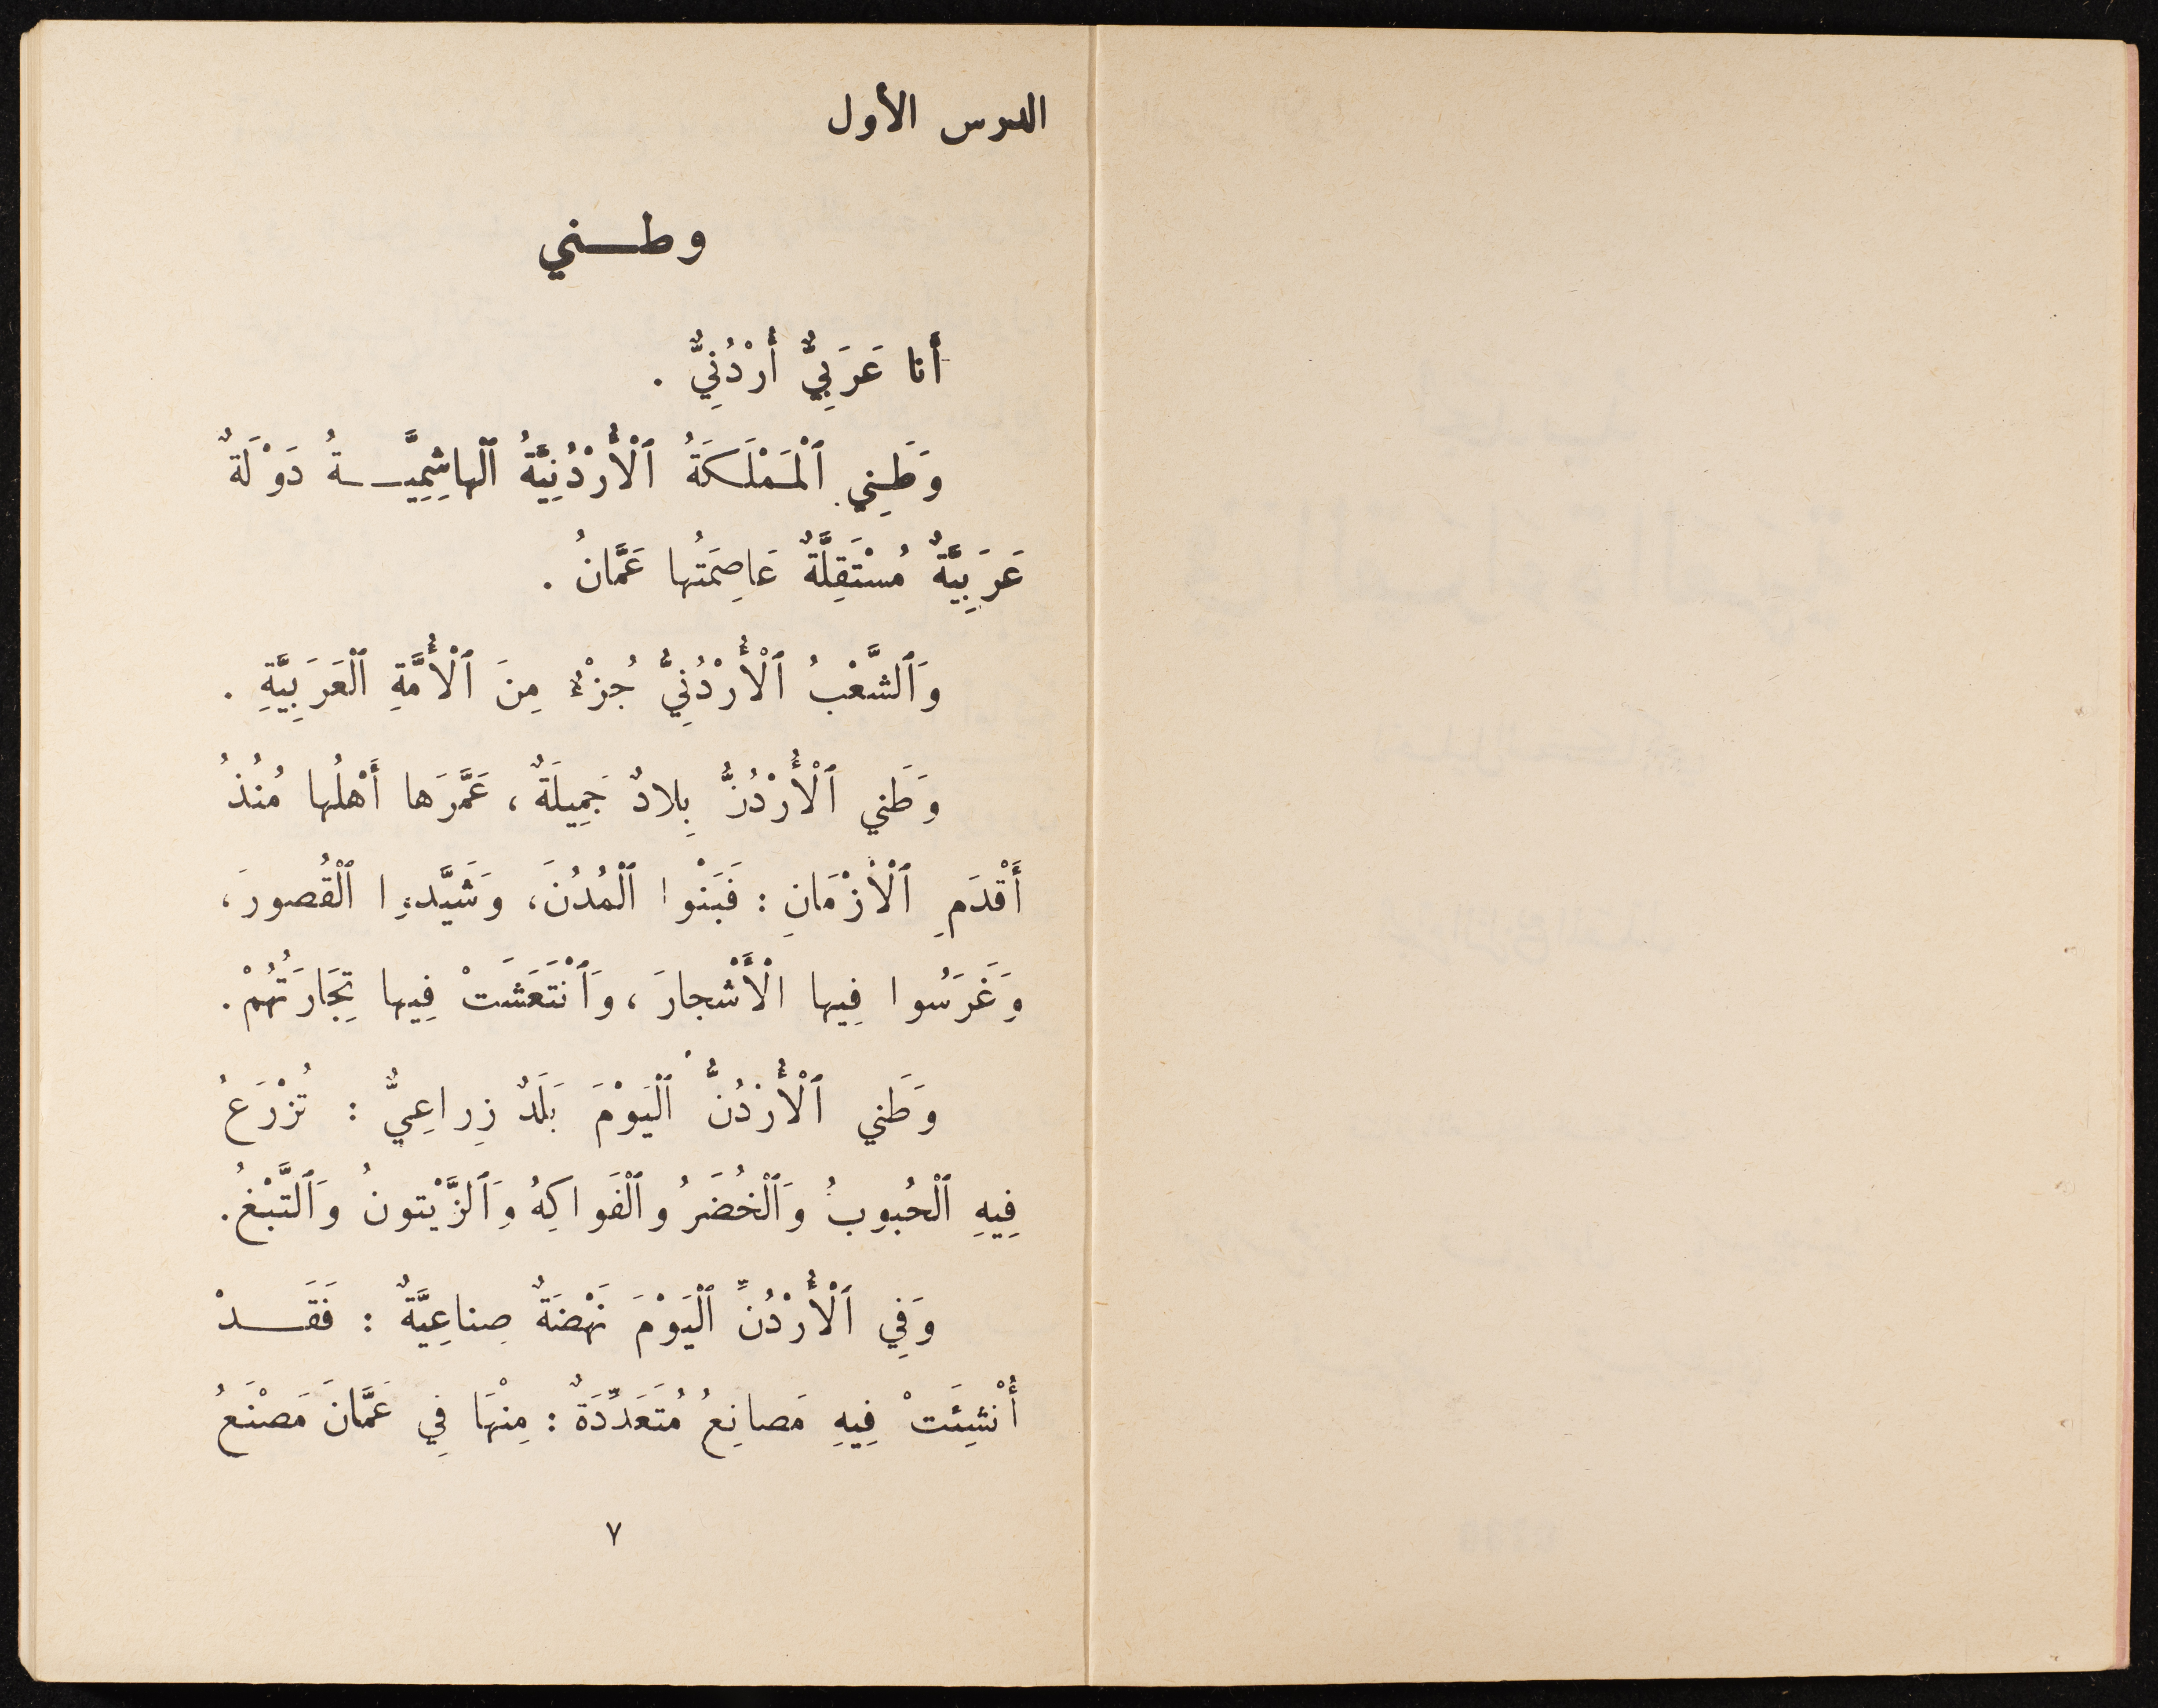 الدرس الأول
وطني
أَنا عَرَبِيٌّ أُرْدُنِيٌّ .
وَطَنِي ٱلْمَمْلَكَةُ ٱلْأُرْدُنِيَّةُ ٱلْهاشِمِيَّةُ دَوْلَةٌ
عَرَبِيَّةٌ مُسْتَقِلَّةٌ عَاصِمَتُها عَمَّانُ .
وَٱلشَّعْبُ ٱلْأُرْدُنِيُّ جُزْءٌ مِنَ ٱلْأُمَّةِ ٱلْعَرَبِيَّةِ .
وَطَني ٱلْأُرْدُنُّ بِلادٌ جَمِيلَةٌ ، عَمَّرَها أَهْلُها مُنْذُ
أَقْدَمِ ٱلْأَزْمَانِ : فَبَنْوا ٱلْمُدُنَ، وَشَيَّدوا ٱلْقُصورَ،
وَغَرَسُوا فِيها الْأَشْجارَ ، وَٱنْتَعَشَتْ فِيها تِجَارَتُهُمْ.
وَطَني ٱلْأُرْدُنُّ ٱلْيَوْمَ بَلَدٌ زِراعِيٌّ : تُزْرَعُ
فِيهِ ٱلْحُبوبُ وَٱلْخُضَرُ وٱلْفَواكِهُ وَٱلزَّيْتونُ وَٱلتَّبْغُ.
وَفِي ٱلْأُرْدُنِّ ٱلْيَوْمَ نَهْضَةٌ صِناعِيَّةٌ : فَقَدْ
أُنْشِئَتْ فِيهِ مَصانِعُ مُتَعَدِّدَةٌ : مِنْهَا فِي عَمَّانَ مَصْنَعُ
٧